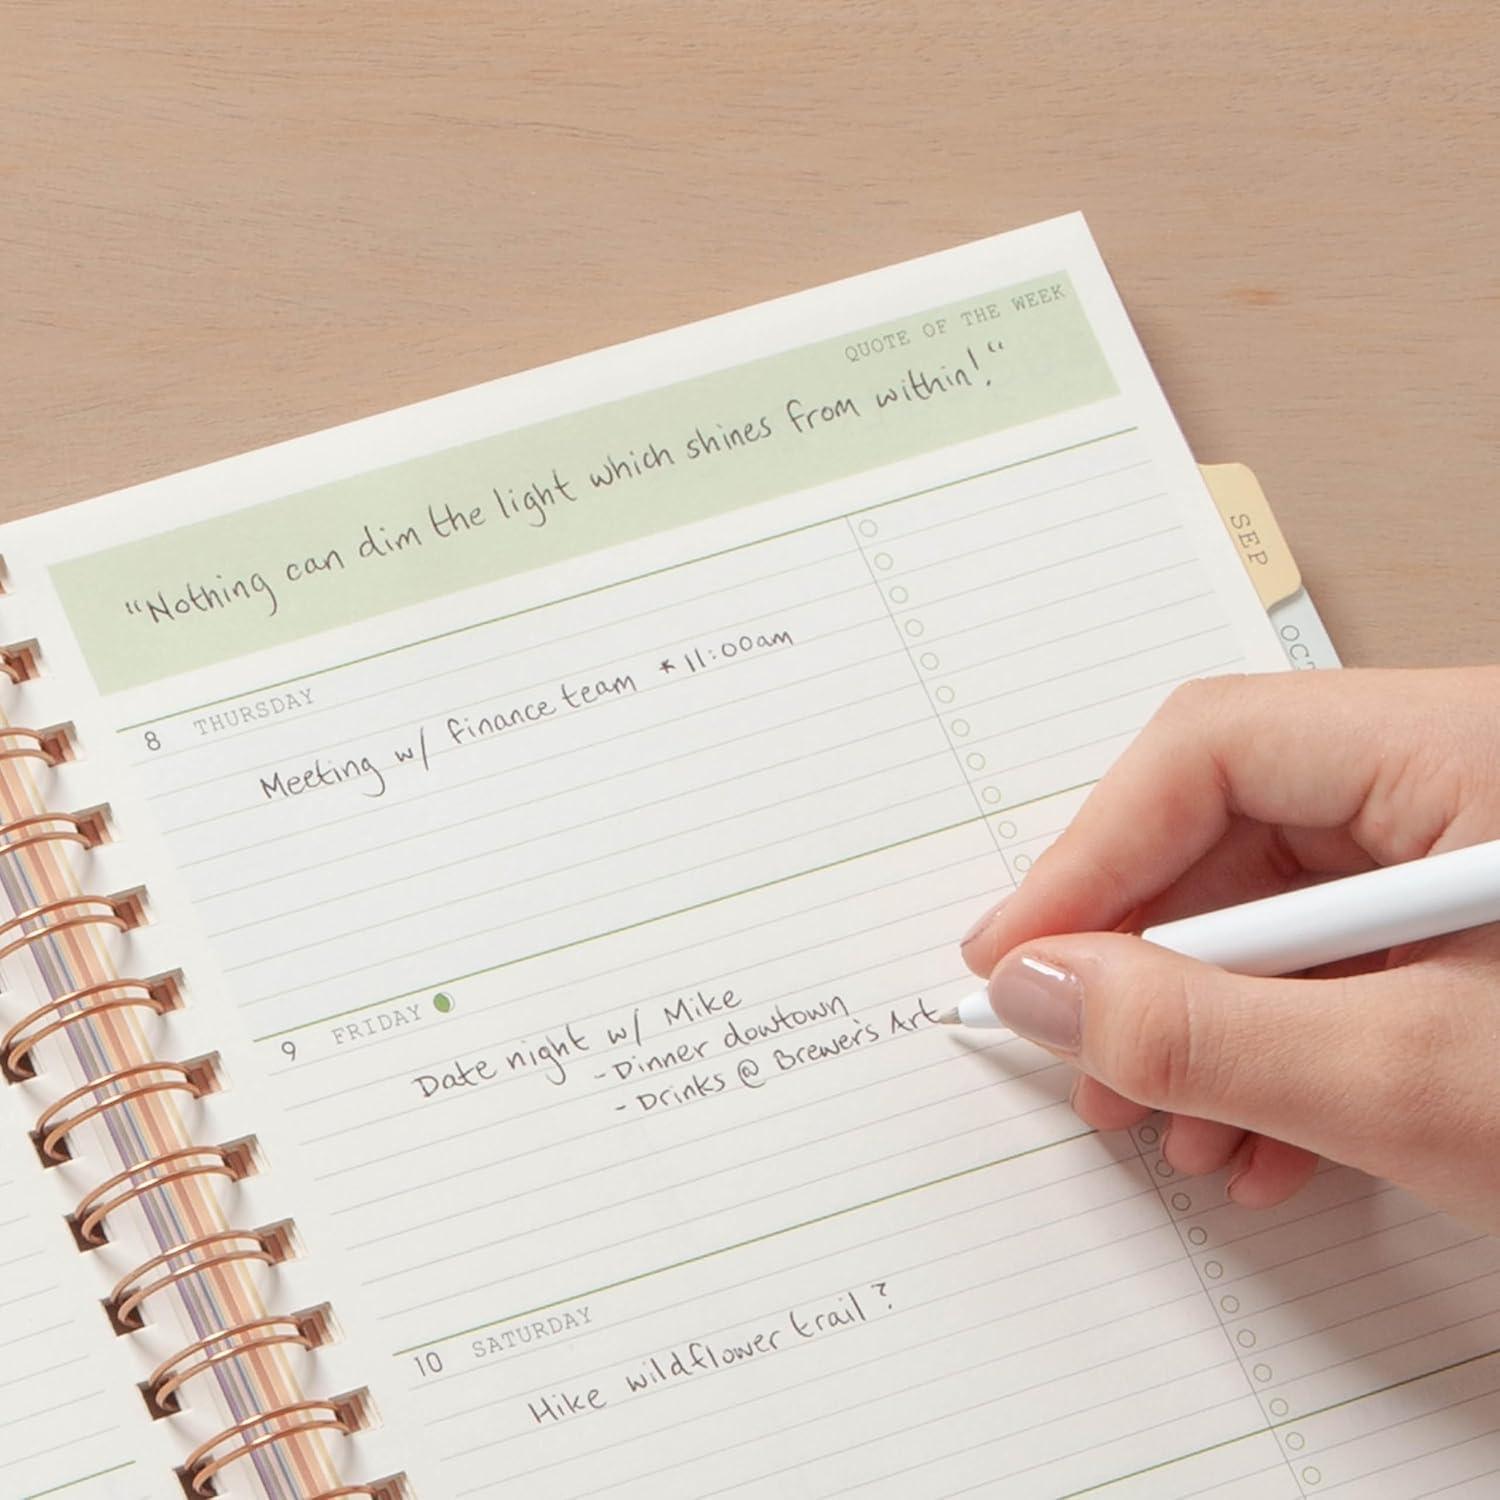 QUOTE OF THE WEEK
“Nothing can dim the light which shines from within!.“
SEP
OCT
8 THURSDAY
Meeting w/ finance team *11:00am
9 FRIDAY
Date night w/ Mike
- Dinner dowtown
- Drinks @ Brewer's Art
10 SATURDAY
Hike wildflower trail?